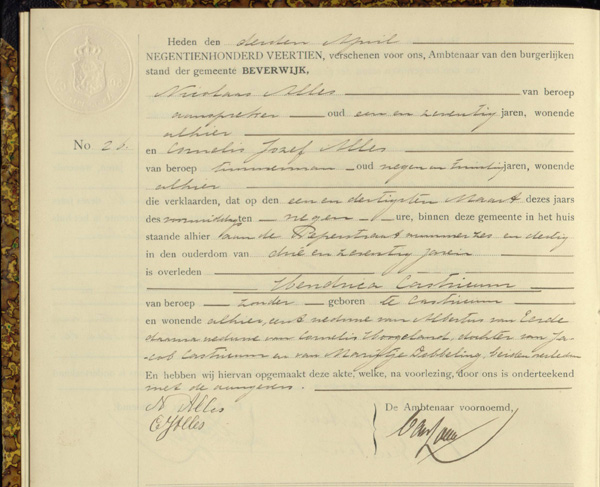 Heden den derden April
NEGENTIENHONDERD VEERTIEN, verschenen voor ons, Ambtenaar van den burgerlijken
stand der gemeente BEVERWIJK,
Nicolaas Alles van beroep
aanspreker oud een en zeventig jaren, wonende
alhier
No 26.
en Cornelis Jozef Alles
van beroep timmerman oud negen en twintig jaren, wonende
alhier
die verklaarden, dat op den een en dertigsten Maart dezes jaars
des voormiddags ten negen ure, binnen deze gemeente in het huis
staande alhier aan de Peperstraat nummer zes en dertig
in den ouderdom van drie en zeventig jaren
is overleden
Hendrica Castricum
van beroep zonder geboren te Castricum
en wonende alhier, eerst weduwe van Albertus van Eerde
daarna weduwe van Cornelis Hoogeland, dochter van Ja-
cob Castricum en van Marijtje Dobbeling, beiden overleden
En hebben wij hiervan opgemaakt deze akte, welke, na voorlezing, door ons is onderteekend
met de aangevers.
N Alles
CJ Alles
De Ambtenaar voornoemd,